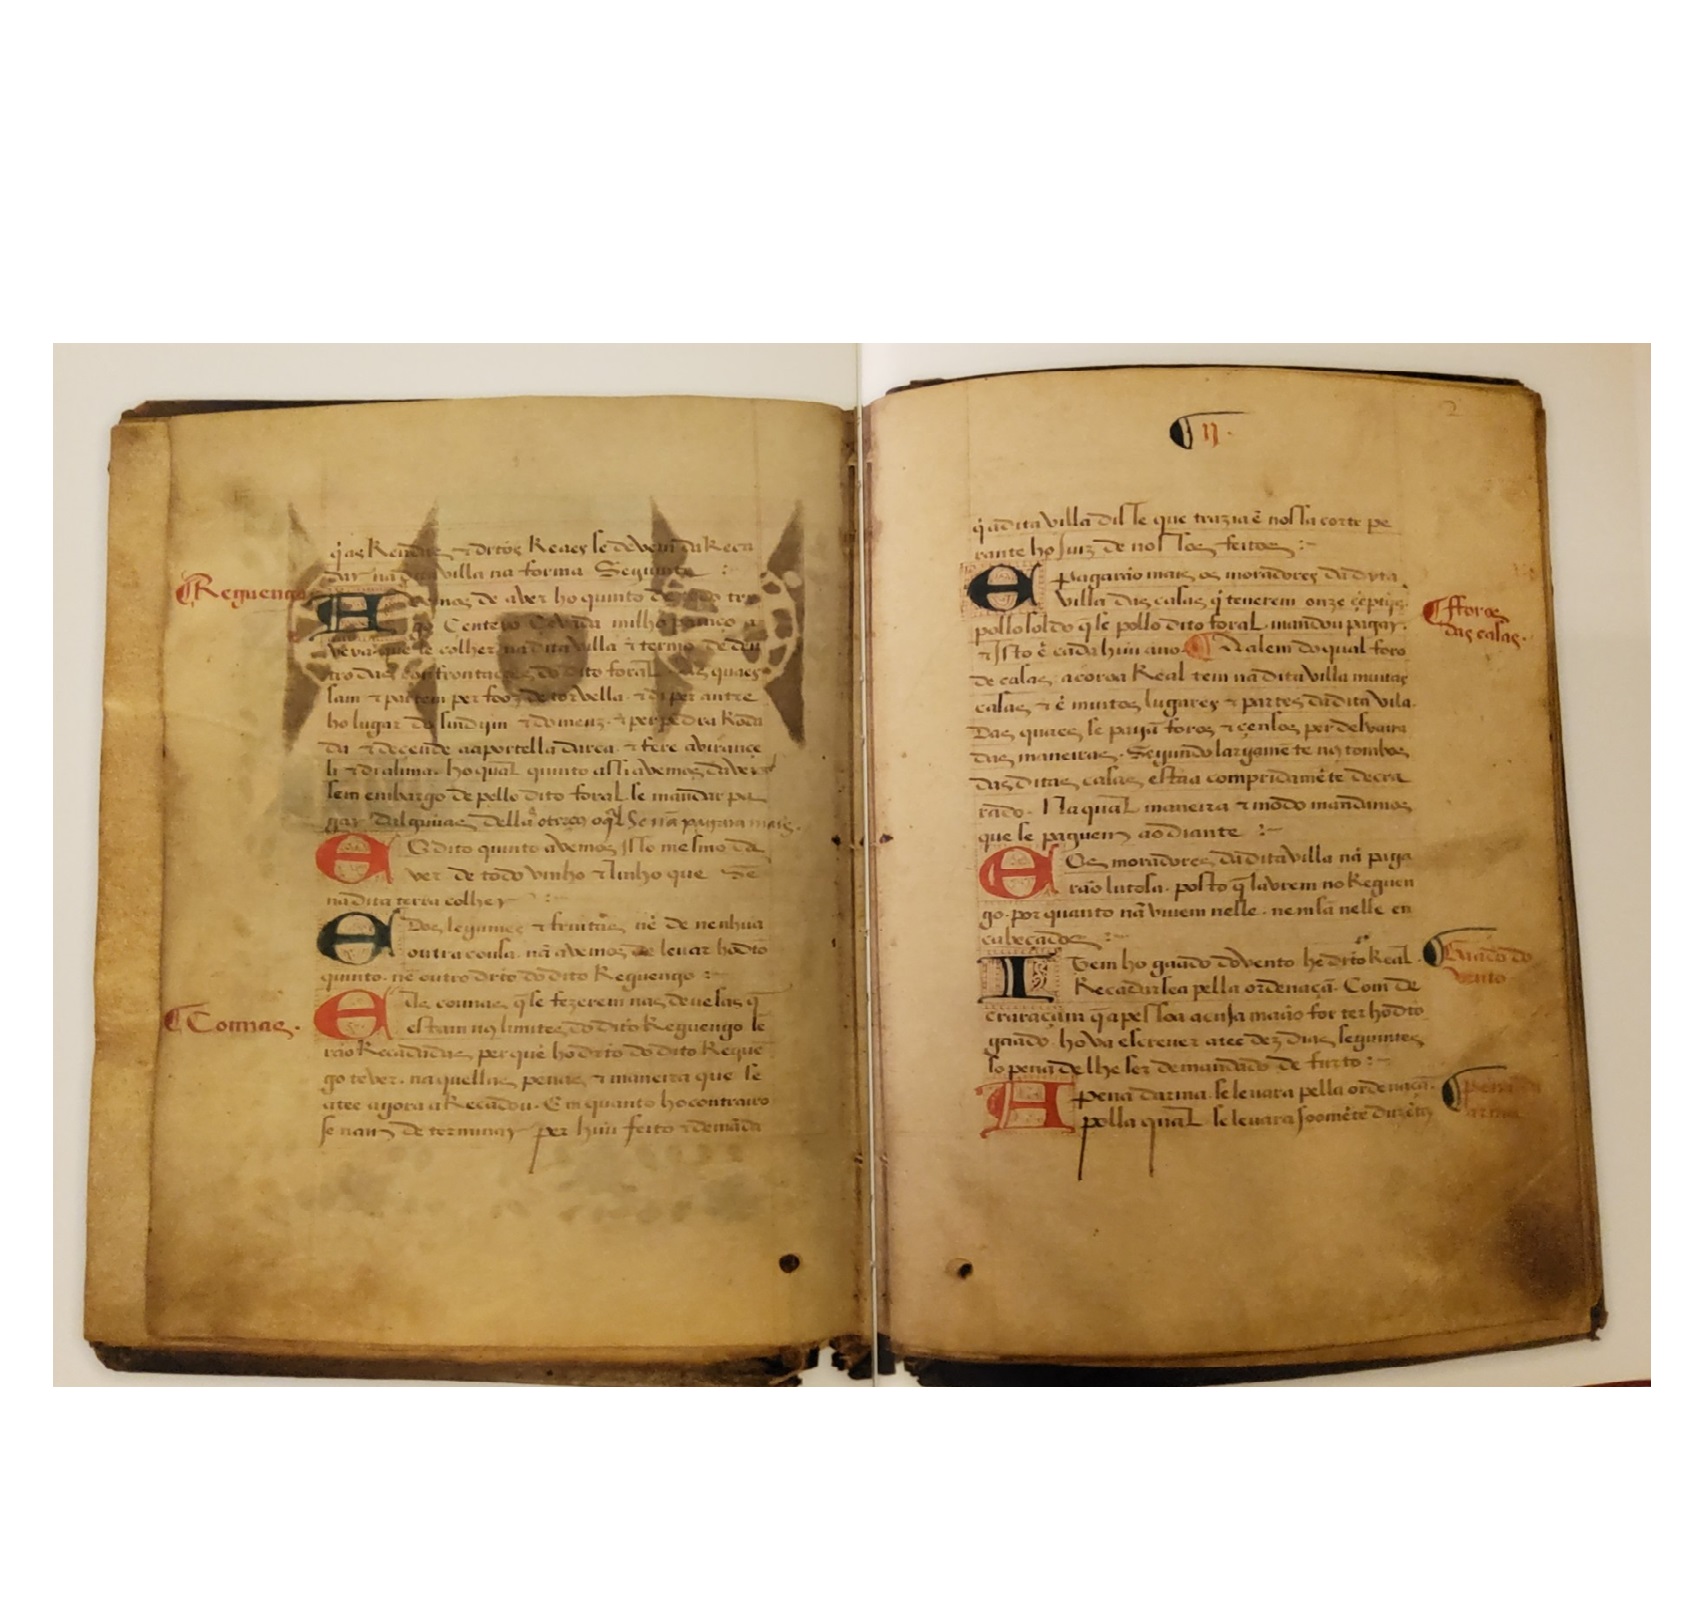 q̃ as Rendas ⁊ dr̃tos Reaes se devem da Reca
dar na dita villa na forma Seguinte :
¶Reguengo
Avemos de aver ho quinto de todo tri
go Centeyo Cevada milho painço a
veya que se colher na dita villa ⁊ termo de den
tro das confrontações do dito foral. As quaes
sam ⁊ partem per fooz de ⁊ di per antre
ho lugar do ⁊ do ⁊ per pedra Roda
da ⁊ decende aa portella darca ⁊ fere
ho qual quinto assi avemos daver
sem embargo de pello dito foral se mandar pa
gar
E O dito quinto avemos Isso mesmo da
ver de todo vinho ⁊ linho que Se
na dita terra colher
E Dos legumes ⁊ fruitas nẽ de nenhũa
outra cousa nã avemos de levar ho dito
quinto. nẽ outro dr̃to do dito Reguengo :~
¶Coimas.
E As coimas q̃ se fezerem nas devesas q̃
estam nos limites do dito Reguengo se
rão Recadadas per quẽ ho dr̃to do dito Regue
go tever. naquellas penas ⁊ maneira que se
atee agora a Recadou. Em quanto ho contrairo
se nam determinar per hũu feito ⁊ demãda
¶ II.
2
q̃ a dita villa disse que trazia ẽ nossa corte pe
rante ho Juiz de nossos feitos :~
¶fforos
das casas.
E pagarão mais os moradores da dyta
villa das casas q̃ teverem onze
pollo soldo q̃ se pollo dito foral mandou pagar.
⁊ Isto ẽ cada hũu ano. ¶ E alem do qual foro
de casas. a coroa Real tem na dita villa muitas
casas ⁊ ẽ muitos lugares ⁊ partes da dita vila.
Das quaes se pagã foros ⁊ çensos per desvaira
das maneiras. Segundo largamẽte nos tombos
das ditas casas estaa compridamẽte decra
rado. Na qual maneira ⁊ modo mandamos
que se paguem ao diante :~
E Os moradores da dita villa nã paga
rão lutosa. posto q̃ lavrem no Reguen
go. por quanto nã vivem nelle. nem sã nelle en
cabeçados :~
¶Guado do
vento
Item ho gaado do vento he dr̃to Real.
Recadarsea pella ordenaçã. Com de
craraçam q̃ a pessoa a cuja maão for ter ho dito
gaado. ho va escrever atee dez dias seguintes
so pena de lhe ser demandado de furto :~
¶Pena da
arma
A pena darma. se levara pella ordenaçã.
polla qual se levara soomẽte duzẽtos